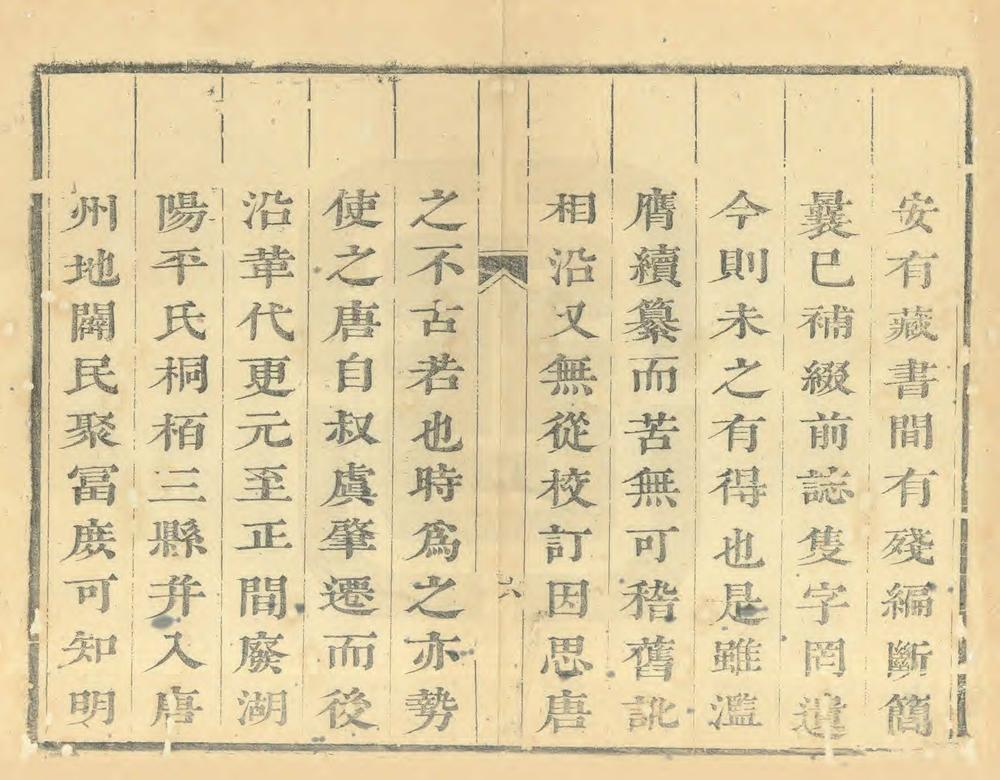 安有藏書間有殘編斷簡
曩已補綴前誌隻字罔遺
今則未之有得也是雖濫
膺續纂而苦無可稽舊訛
相沿又無從校訂因思唐
六
之不古若也時爲之亦勢
使之唐自叔虞肇遷而後
沿革代更元至正間廢湖
陽平氏桐栢三縣并入唐
州地闢民聚冨庻可知明